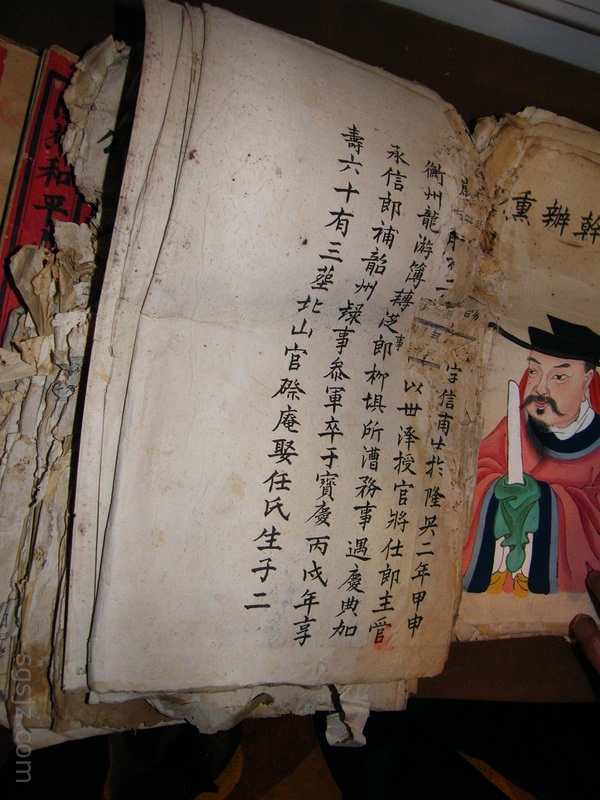 幹辦熏
字信甫生於隆興二年甲申
以世澤授官將仕郎主管
衢州龍游簿轉郎柳填所漕務事遇慶典加
承信郎補韶州錄事參軍卒于寶慶丙戌年享
壽六十有三葬北山官磜庵娶任氏生子二
和平
sgsjz.com